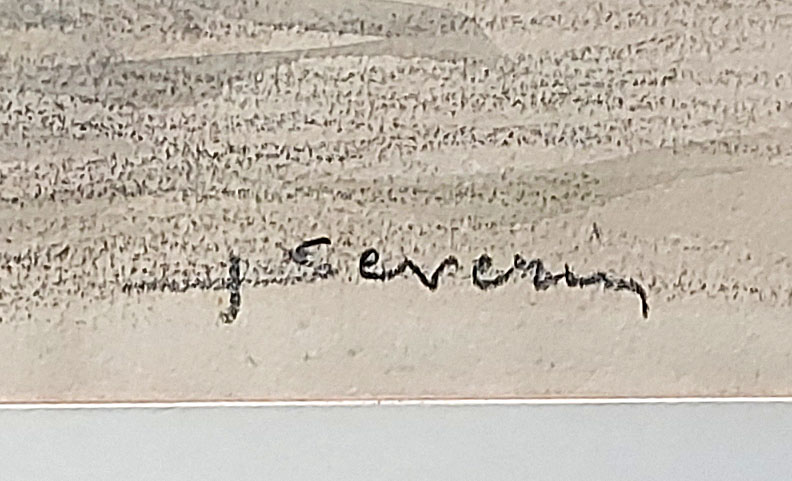 J Severin